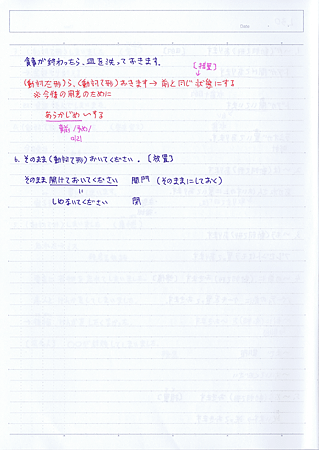 Date
食事が終わったら、皿を洗っておきます。
(動詞た形)ら、(動詞て形)おきます→ 前と同じ状態にする
※今後の用意のために
あらかじめ〜する
b. そのまま(動詞て形)おいてください。(放置)
そのまま開けておいてください 開門 (そのままにしておく)
=
しめないでください 閉